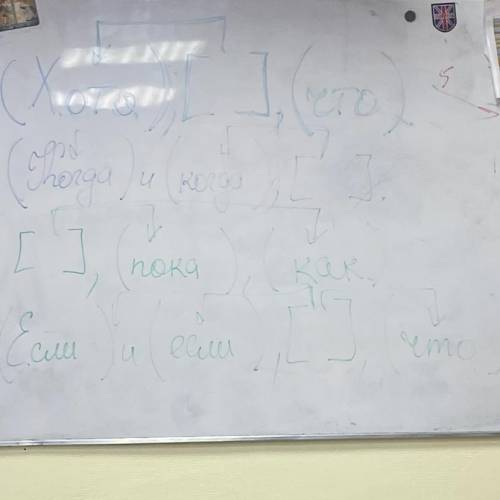 (Хотя), [ ], (что)
(Когда) и (когда), [ ].
[ ], (пока), (как,
(Если) и (если), [ ], (что